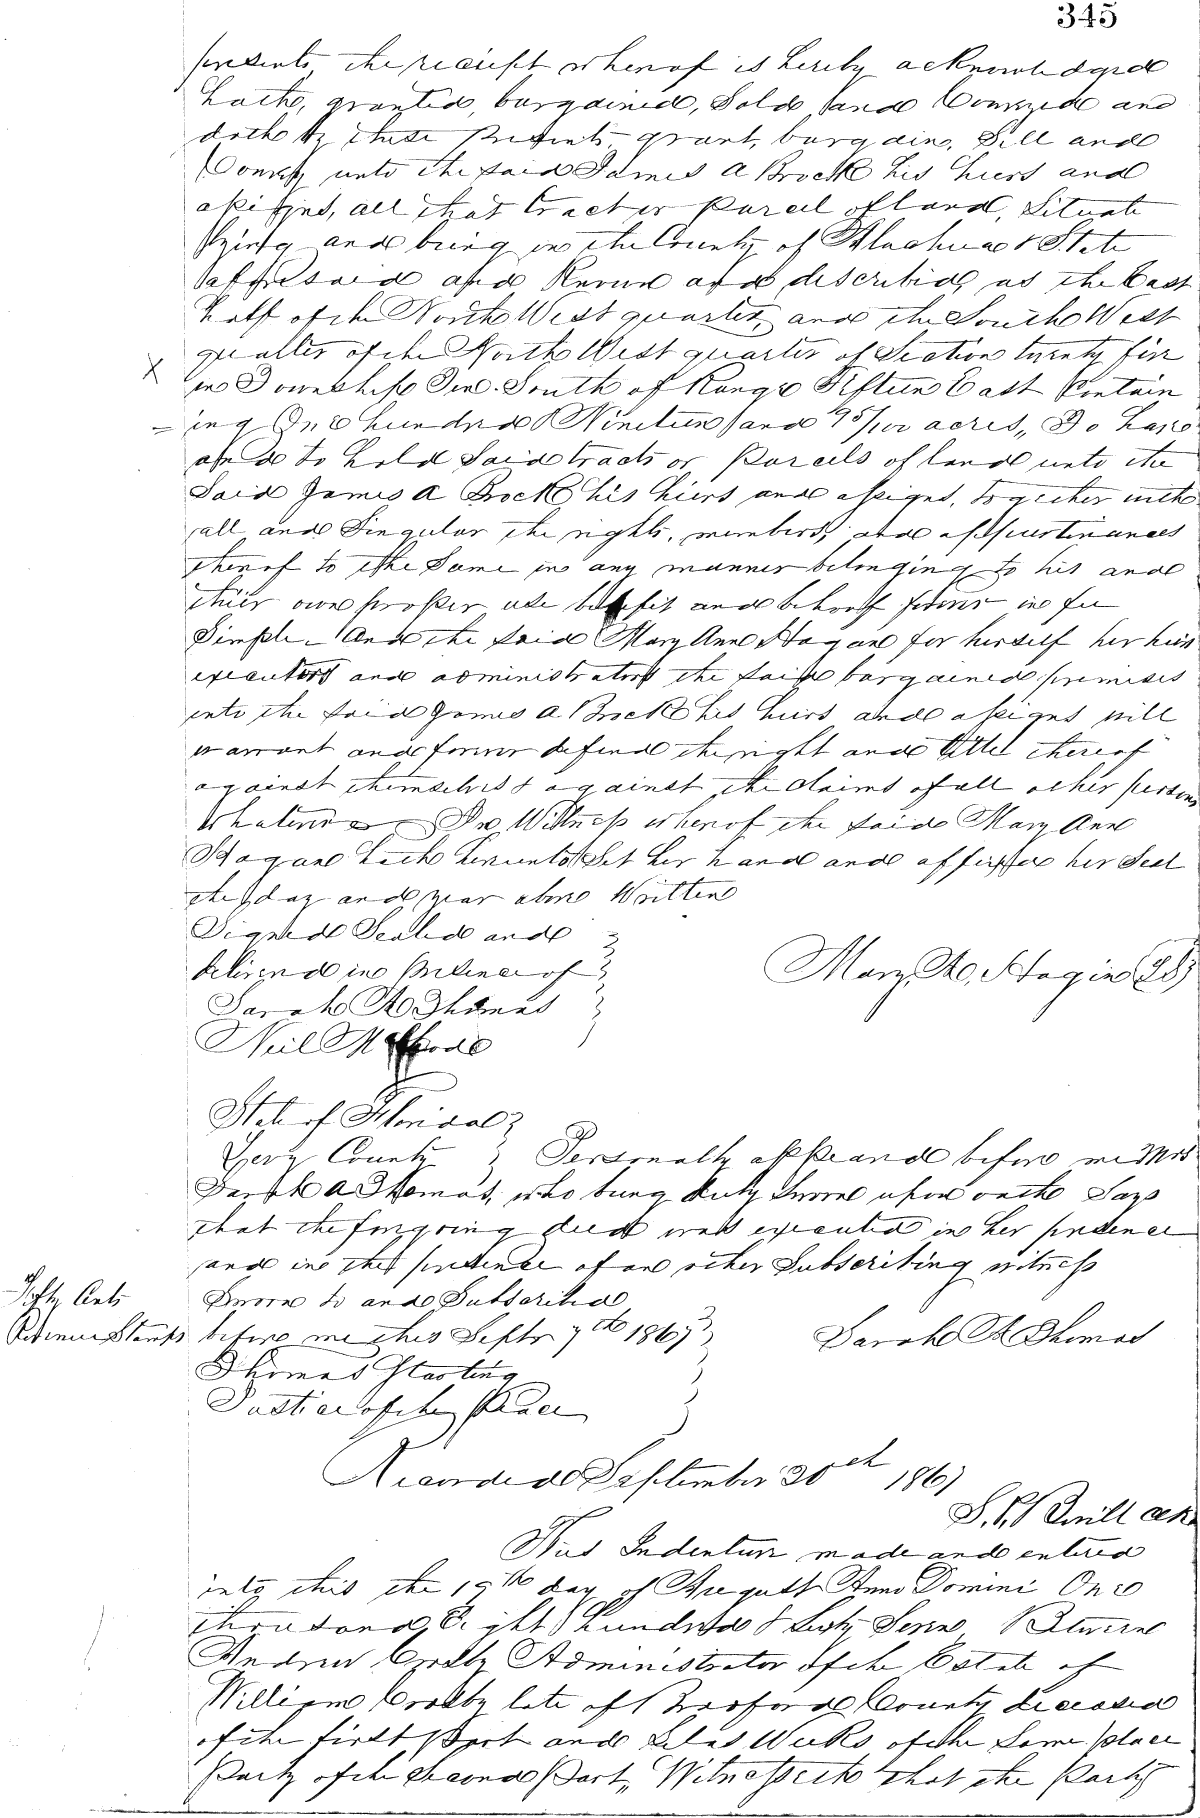 345
presents, the receipt whereof is hereby acknowledged
hath, granted, bargained, Sold and Conveyed and
doth by these presents, grant, bargain, Sell and
Convey unto the said James A Brock his heirs and
assigns, all that tract or parcel of land, Situate
lying and being in the County of Alachua & State
aforesaid and Known and described, as the East
half of the North West quarter, and the South West
quarter of the North West quarter of Section twenty five
X in Township Ten South of Range Fifteen East Contain
= ing One hundred Nineteen and 95/100 acres, To have
and to hold Said tracts or Parcels of land unto the
Said James A Brock his heirs and assigns, together with
all and Singular the rights, members, and appurtinances
thereof to the Same in any manner belonging to his and
their own proper use benefit and behoof forever in fee
Simple. And the said Mary Ann Hagan for herself her heirs
executors and administrators the said bargained premises
unto the said James A Brock his heirs and assigns will
warrant and forever defend the right and title thereof
against themselves & against the claims of all other persons
Whatever In Wittness whereof the said Mary Ann
Hagan hath hereunto Set her hand and affixed her Seal
the day and year above Written
Signed Sealed and
delivered in presence of
Mary A. Hagin (LS)
Sarah A Thomas
Neil
State of Florida
Levy County Personally appeared before me Mrs
Sarah A Thomas, who being duly Sworn upon oath Says
that the forgoing deed was executed in her presence
and in the presence of one other Subscribing witness
Fifty Cents Sworn to and Subscribed
Revenue Stamps before me this Septr 7th 1867 Sarah A Thomas
Thomas Starling
Justice of the Peace
Recorded September 20th 1867
S. Clk
This Indenture made and entered
into this the 19th day of August Anno Domini One
thousand Eight Hundred & Sixty Seven Between
Andrew Crosby Administrator of the Estate of
William Crosby late of Bradford County deceased
of the first Part and Silas Weeks of the Same place
Party of the Second Part, Witnesseth that the Party